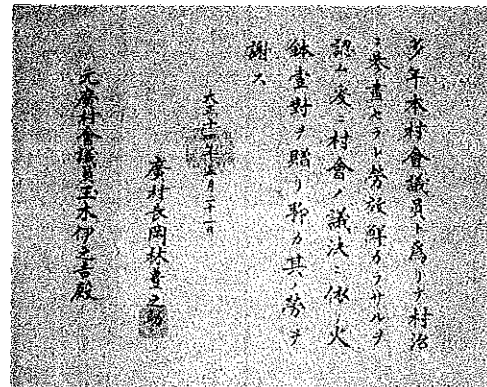 多年本村會議員ト為リテ村治
ニ参畫セラレ労放鮮カラサルヲ
認ム爰ニ村會ノ議決ニ依リ火
鉢壹對ヲ贈リ聊カ其ノ勞ヲ
謝ス
大正十四年五月二十一日
廣村長岡林
元廣村會議員玉木伊之吉殿